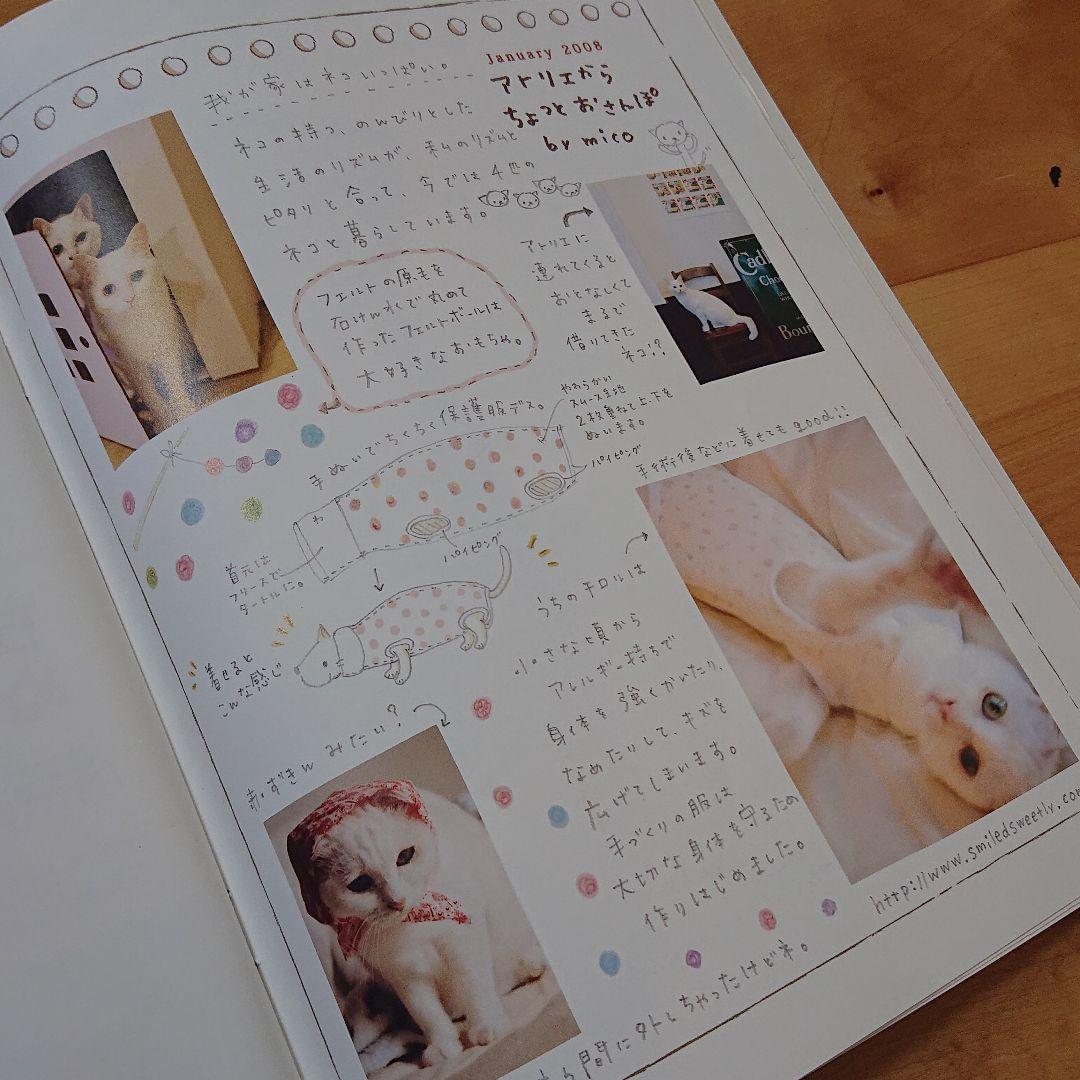 January 2008
アトリエから
ちょっとおさんぽ
by mico
我が家はネコいっぱい。
ネコの持つ、のんびりとした
生活のリズムが、私のリズムと
ピタリと合って、今では4匹の
ネコと暮らしています。
フェルトの原毛を
石けん水で丸めて
作ったフェルトボールは
大好きなおもちゃ。
アトリエに
連れてくると
おとなしくて
まるで
借りてきた
ネコ!?
Cad
Cho
Bour
手ぬいでちくちく保護服デス。
やわらかい
スムース生地
2枚重ねて上下を
ぬいます。
パイピング
わ
パイピング
首元は
フリースで
タートルに。
着せると
こんな感じ
手術後などに着せてもgood!!
うちのチロルは
小さな頃から
アレルギー持ちで
身体を強くかいたり、
なめたりして、キズを
広げてしまいます。
手づくりの服は
大切な身体を守るため
作りはじめました。
赤ずきんみたい?
間に外しちゃったけどネ。
http://www.smiledsweetly.com